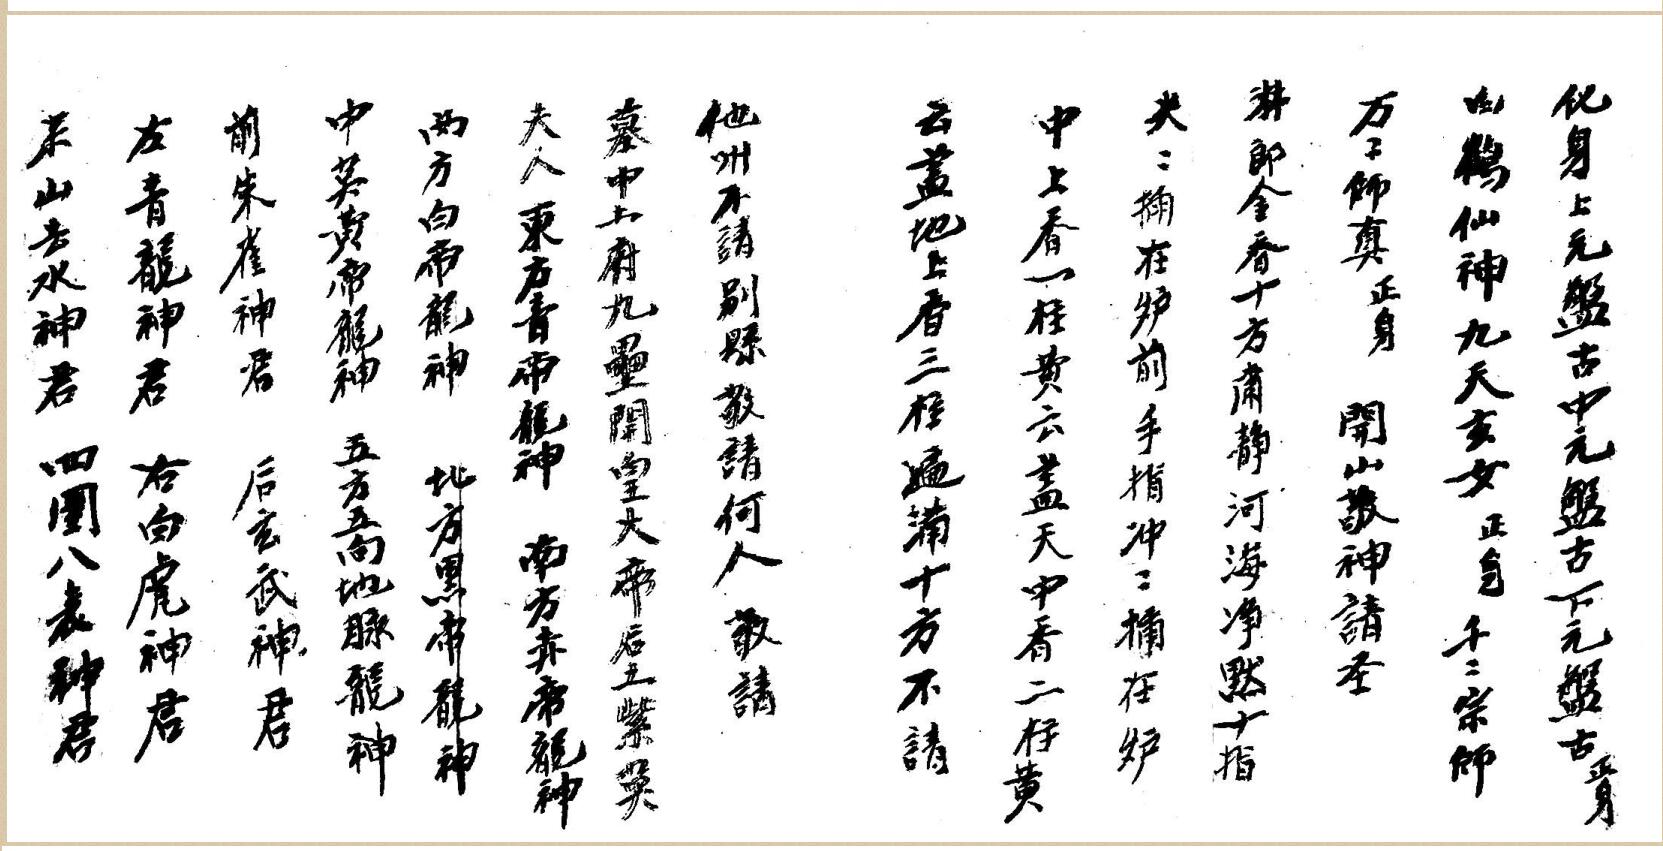 化身上元盤古中元盤古下元盤古正身
鶴仙神九天玄女正身千〻宗師
万〻師真正身　開山敬神請圣
郎金香十方肅静河海净默十指
尖〻插在炉前手指冲〻插在炉
中上香一柱黄云盖天中香二柱黄
云盖地上香三柱遍满十方不請
他州不請别縣敬請何人敬請
墓中土府九壘開皇大帝后土紫英
夫人東方青帝龍神　南方赤帝龍神
西方白帝龍神　北方黑帝龍神
中英黄帝龍神　五方五向地脉龍神
前朱雀神君　后玄武神君
左青龍神君　右白虎神君
來山去水神君　四圍八表神君